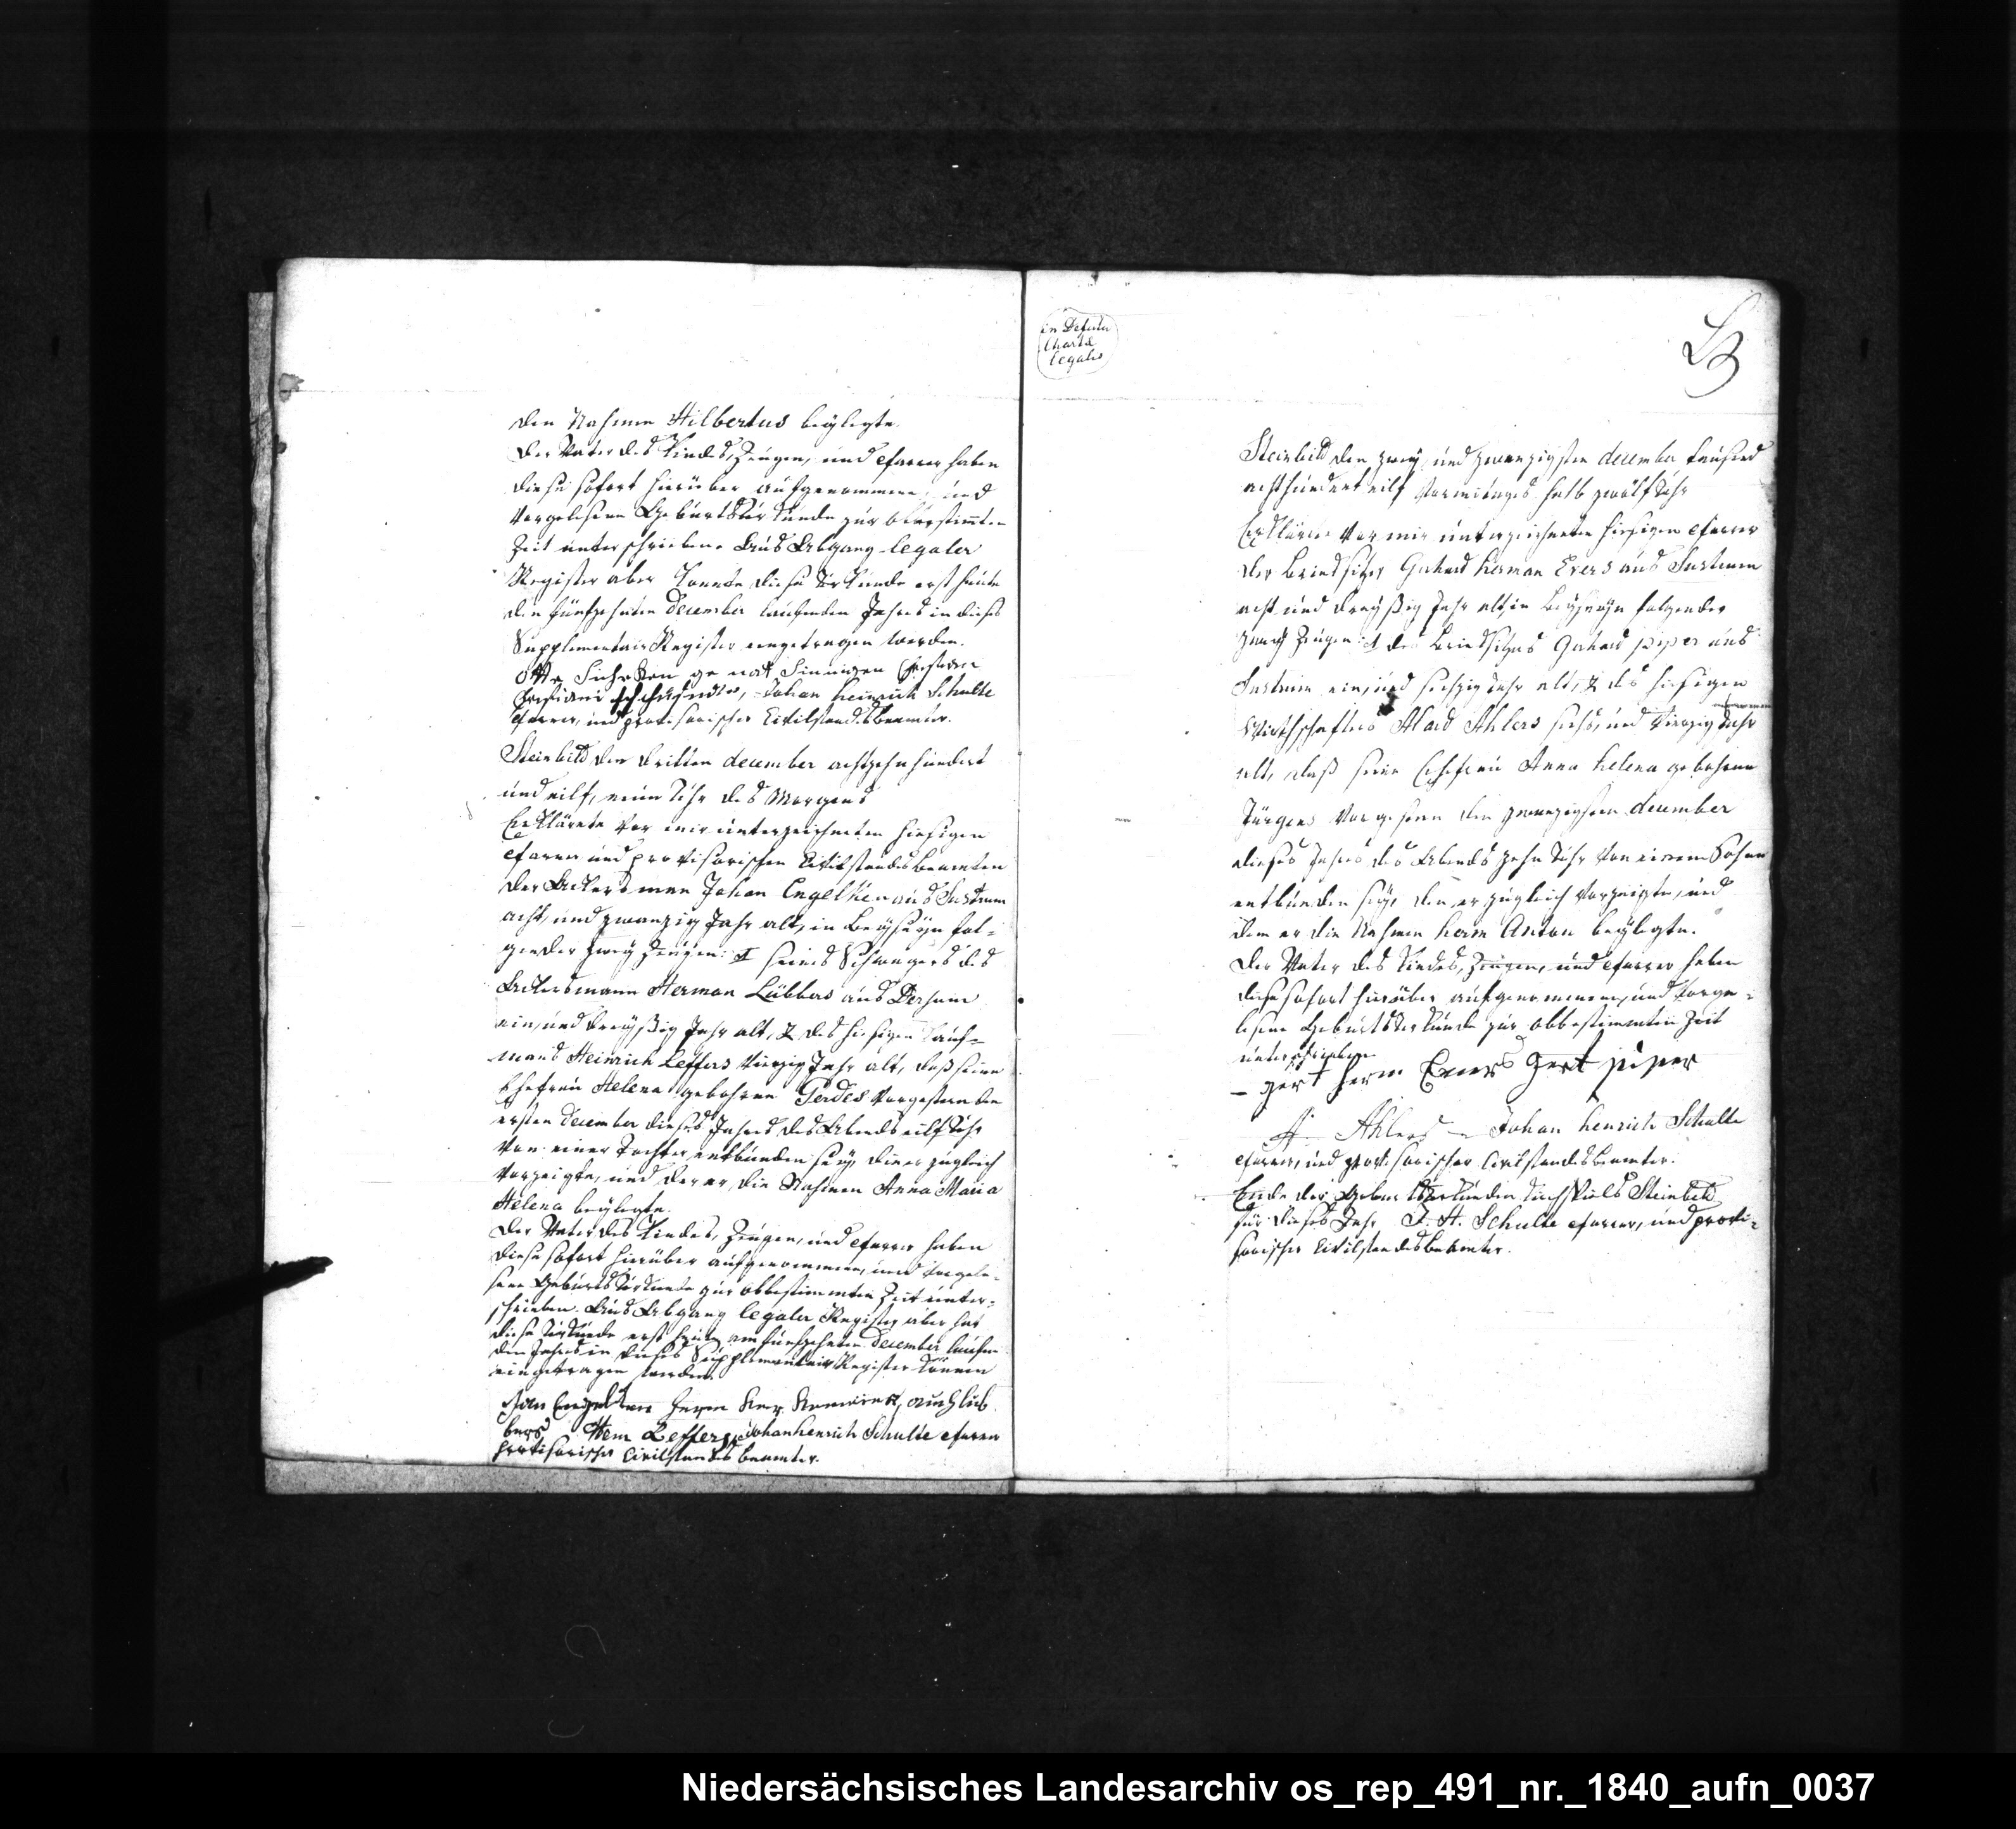 den Nahmen Hilbertus beÿlegte.
Der Vater des Kindes, Zeugen, und Pfarrer haben
diese sofort hierüber aufgenommene, und
vorgelesene Geburtsurkunde zur obbestimten
Zeit unterschrieben. Aus Abgang legaler
Register aber konnte diese Urkunde erst heute
den fünfzehnten December laufenden Jahres in dieses
Supplementair Register eingetragen werden.
Johan Heinrich Schulte
Pfarrer, und provisorischer Civilstandsbeamter.
Steinbild den dritten december achtzehnhundert
und eilf, neun Uhr des Morgens
Erklärete vor mir unterzeichneten hiesigen
Pfarrer und provisorischen Civilstandsbeamten
der Ackersman Johan Engelken aus Sustrum
acht, und zwanzig Jahr alt, in Beÿseÿn fol=
gender zweÿ Zeugen: 1 seines Schwagers des
Ackersmann Herman Lübbers aus Dersum
ein, und dreÿßig Jahr alt, 2 des hiesigen Kauf=
mans Heinrich Leffers vierzig Jahr alt, daß seine
Ehefrau Helena gebohrne Gerdes vorgestern den
ersten December dieses Jahres des Abends eilf Uhr
von einer Tochter entbunden seÿ, die er zugleich
vorzeigte, und der er die Nahmen Anna Maria
Helena beÿlegte.
Der Vater des Kindes, Zeugen, und Pfarrer haben
diese sofort hierüber aufgenommene, und vorgele=
sene Geburtsurkunde zur obbestimmten Zeit unter=
schrieben. Aus Abgang legaler Register aber hat
diese Urkunde erst heute am fünfzehnten December laufen
den Jahres in dieses Supplementair Register können
eingetragen werden.
Jan Engelken Herm lüb
bers Hem Leffers Johan Henrich Schulte Pfarrer
provisorischer Civilstandsbeamter.
in Defectu
Charta
legalis
Steinbild den zweÿ, und zwanzigsten december tausend
achthundert eilf Vormittags halb zwölf Uhr
Erklärte vor mir unterzeichneten hiesigen Pfarrer
der Brinksitzer Gerhard Herman Evers aus Sustrum
acht und dreÿßig Jahr alt, in Beÿseÿn folgender
zweÿ Zeugen: 1 des Brinksitzers Gerhard pieper aus
Sustrum ein, und sechzig Jahr alt, 2 des hiesigen
Wirthschafters Alard Ahlers sechs, und vierzig Jahr
alt, daß seine Ehefrau Anna Helena gebohrne
Jürgens vorgestern den zwanzigsten december
dieses Jahres des Abends zehn Uhr von einem Sohne
entbunden seÿ, den er zugleich vorzeigte, und
dem er die Nahmen Herm Anton beÿlegte.
Der Vater des Kindes, Zeugen, und Pfarrer haben
diese sofort hierüber aufgenommene, und vorge=
lesene Geburtsurkunde zur obbestimmten Zeit
unterschrieben.
– gert herm Evers gert pieper
A. Ahlers – Johan Henrich Schulte
Pfarrer, und provisorischer Civilstandsbeamter.
Ende der Geburtsurkunden Kirchspiels Steinbild
für dieses Jahr J. H. Schulte Pfarrer, und provi=
sorischer Civilstandsbeamter.
Niedersächsisches Landesarchiv os_rep_491_nr._1840_aufn_0037